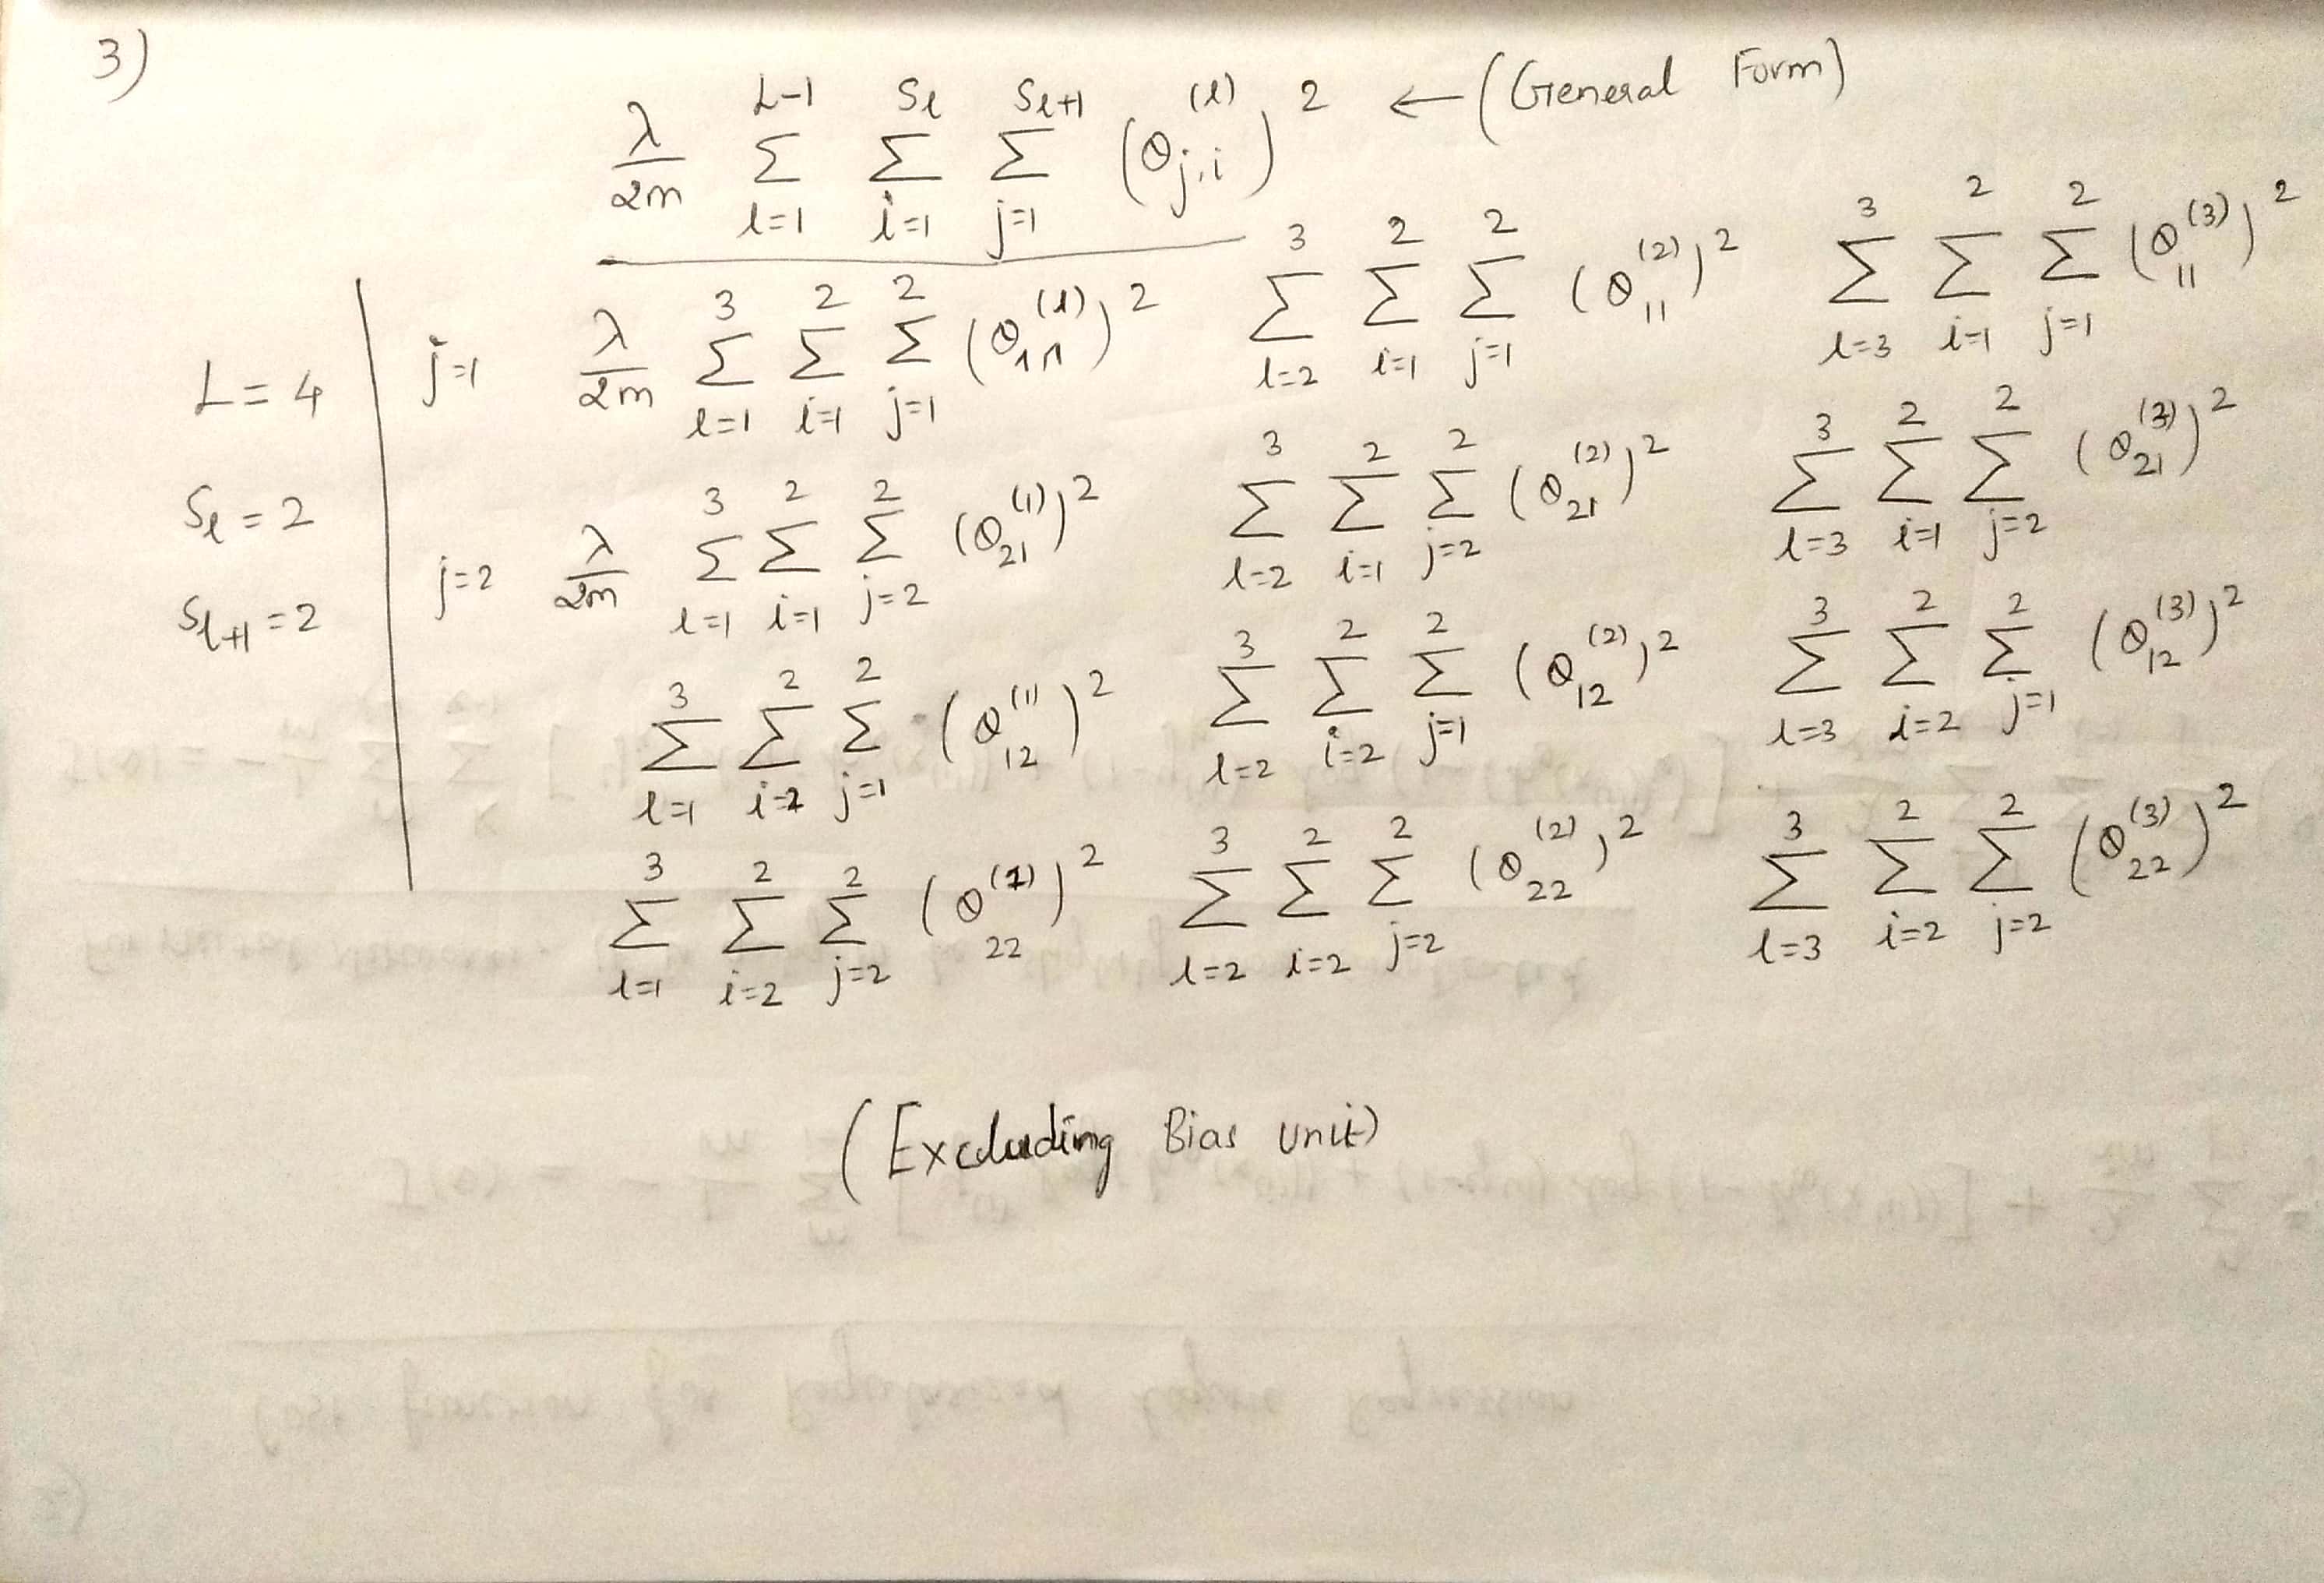 3)
λ/2m Σ_{l=1}^{L-1} Σ_{i=1}^{S_l} Σ_{j=1}^{S_{l+1}} (Θ_{j,i}^{(l)})^2 ← (General Form)
L = 4
S_l = 2
S_{l+1} = 2
j=1 λ/2m Σ_{l=1}^{3} Σ_{i=1}^{2} Σ_{j=1}^{2} (Θ_{11}^{(1)})^2 Σ_{l=2}^{3} Σ_{i=1}^{2} Σ_{j=1}^{2} (Θ_{11}^{(2)})^2 Σ_{l=3}^{3} Σ_{i=1}^{2} Σ_{j=1}^{2} (Θ_{11}^{(3)})^2
j=2 λ/2m Σ_{l=1}^{3} Σ_{i=1}^{2} Σ_{j=2}^{2} (Θ_{21}^{(1)})^2 Σ_{l=2}^{3} Σ_{i=1}^{2} Σ_{j=2}^{2} (Θ_{21}^{(2)})^2 Σ_{l=3}^{3} Σ_{i=1}^{2} Σ_{j=2}^{2} (Θ_{21}^{(3)})^2
Σ_{l=1}^{3} Σ_{i=2}^{2} Σ_{j=1}^{2} (Θ_{12}^{(1)})^2 Σ_{l=2}^{3} Σ_{i=2}^{2} Σ_{j=1}^{2} (Θ_{12}^{(2)})^2 Σ_{l=3}^{3} Σ_{i=2}^{2} Σ_{j=1}^{2} (Θ_{12}^{(3)})^2
Σ_{l=1}^{3} Σ_{i=2}^{2} Σ_{j=2}^{2} (Θ_{22}^{(1)})^2 Σ_{l=2}^{3} Σ_{i=2}^{2} Σ_{j=2}^{2} (Θ_{22}^{(2)})^2 Σ_{l=3}^{3} Σ_{i=2}^{2} Σ_{j=2}^{2} (Θ_{22}^{(3)})^2
(Excluding Bias unit)